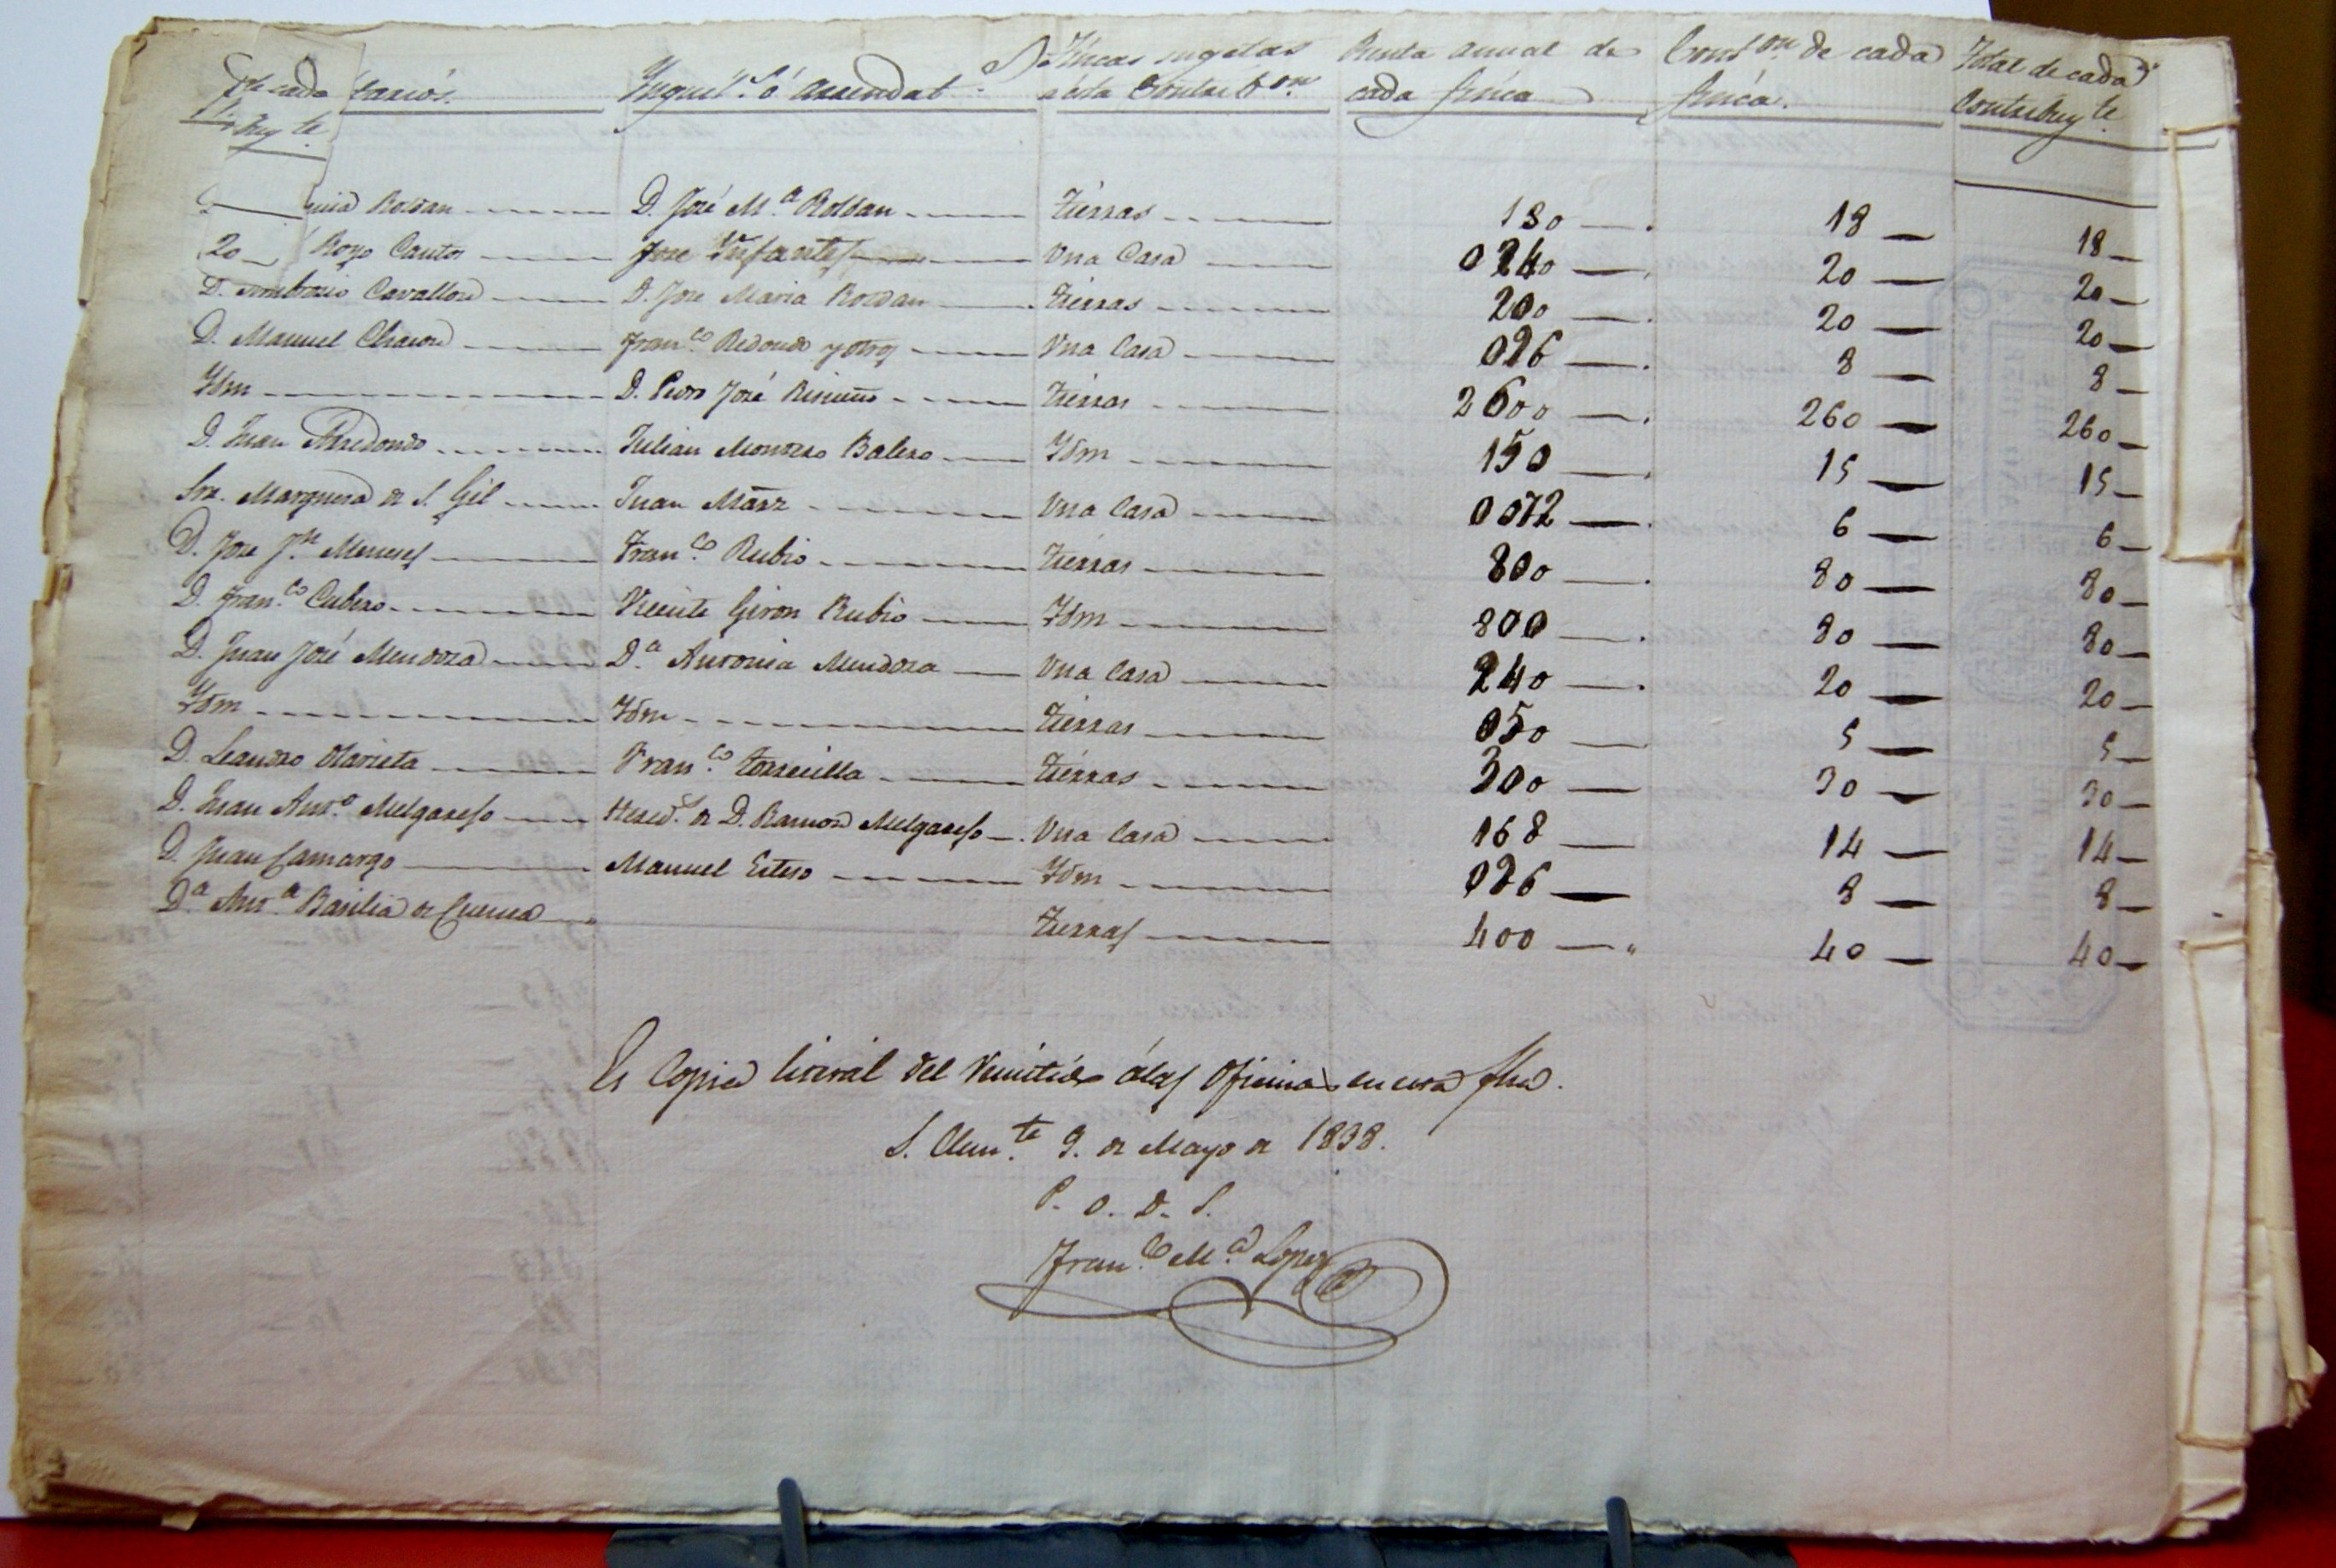 de cada tarios. Inquil.s ó arrendat.s Fíncas sugetas Renta anual de Cont.on de cada Total de cada
buy.te á ésta Contrib.on cada finca finca. Contribuy.te
Roldan D. José M.a Roldan tierras 180 18 18
20 Royo Cantos Jose Ynfantes Una Casa 0240 20 20
D. Ambrosio Cavallon D. Jose Maria Roldan tierras 200 20 20
D. Manuel Chacon Fran.co Redondo y otros Una Casa 096 8 8
Ydm D. Pedro José tierras 2600 260 260
D. Juan Arredondo Julian Montero Balero Ydm 150 15 15
Sra. Marquesa de S. Gil Juan Marz Una Casa 0072 6 6
D. Jose J.n Meneses Fran.co Rubio tierras 800 80 80
D. Fran.co Cubero Vicente Giron Rubio Ydm 800 80 80
D. Juan José Mendoza D.a Antonia Mendoza Una Casa 240 20 20
Ydm Ydm tierras 050 5 5
D. Leandro Olavieta Fran.co Torrecilla tierras 300 30 30
D. Juan Ant.o Melgarejo Hered.s de D. Ramon Melgarejo Una Casa 168 14 14
D. Juan Camargo Manuel Esteso Ydm 096 8 8
D.a Ant.a Basilia de Cuenca tierras 400 40 40
Es Copia literal del remitido á las Oficinas en esta fha.
S. Clem.te 9. de Mayo de 1838.
P. O. D. S.
Fran.co M.a Lopez